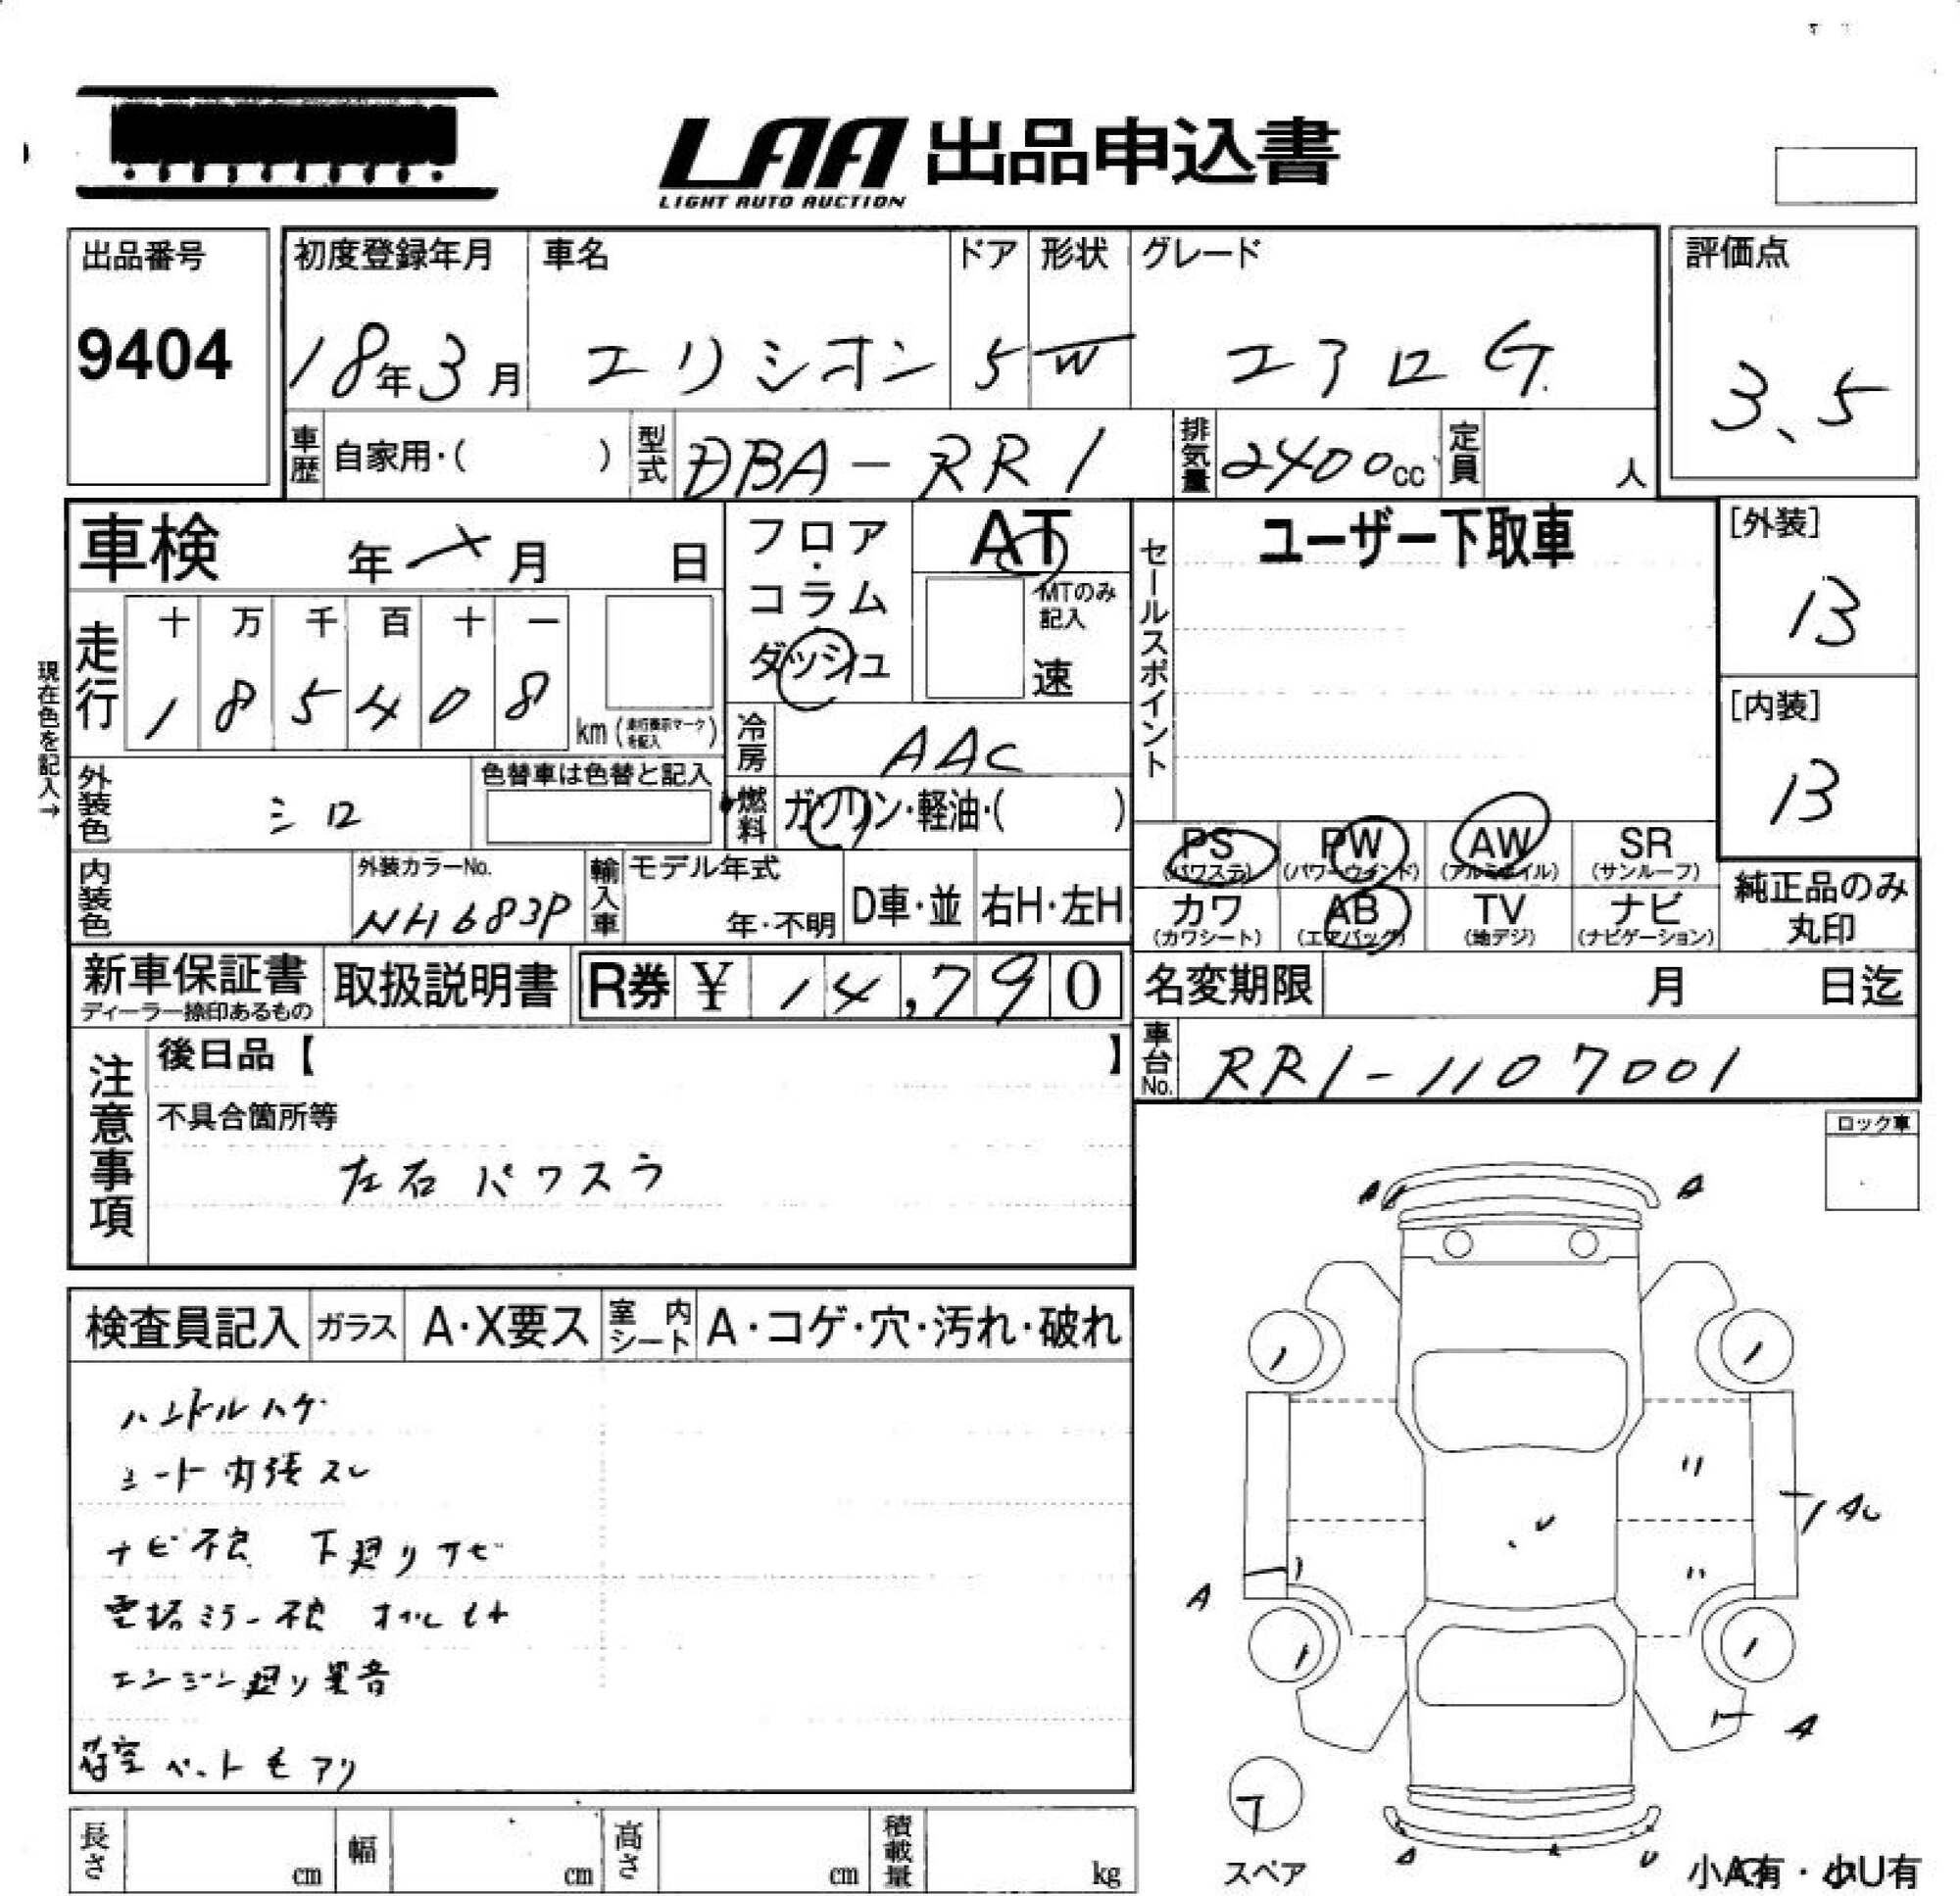 LAA 出品申込書
LIGHT AUTO AUCTION
出品番号
9404
初度登録年月 車名 ドア 形状 グレード
18年3月 エリシオン 5 W エアロG
評価点
3.5
車歴 自家用・( ) 型式 DBA-RR1 排気量 2400cc 定員 人
車検 年 メ 月 日
フロア・コラム ダッシュ
AT
MTのみ記入
速
セールスポイント
ユーザー下取車
[外装]
B
[内装]
B
現在色を記入→
走行
十 万 千 百 十 一
1 8 5 4 0 8
km(走行表示マークを記入)
冷房 AAC
外装色 シロ
色替車は色替と記入
燃料 ガソリン・軽油・( )
PS (パワステ) PW (パワーウインド) AW (アルミホイル) SR (サンルーフ)
カワ (カワシート) AB (エアバッグ) TV (地デジ) ナビ (ナビゲーション)
純正品のみ丸印
内装色
外装カラーNo.
NH683P
輸入車 モデル年式
年・不明 D車・並 右H・左H
新車保証書
ディーラー捺印あるもの
取扱説明書
R券 ¥ 14,790
名変期限 月 日迄
車台No. RR1-1107001
注意事項
後日品【 】
不具合箇所等
左右パワスラ
ロック車
検査員記入 ガラス A・X要ス 室内シート A・コゲ・穴・汚れ・破れ
ハンドルハゲ
シート内張スレ
ナビ不良 下廻りサビ
電格ミラー不良 オイルモレ
エンジン廻り異音
荷室ペット毛アリ
A
A
A
A
A
U
スペア
小A有・小U有
長さ cm 幅 cm 高さ cm 積載量 kg